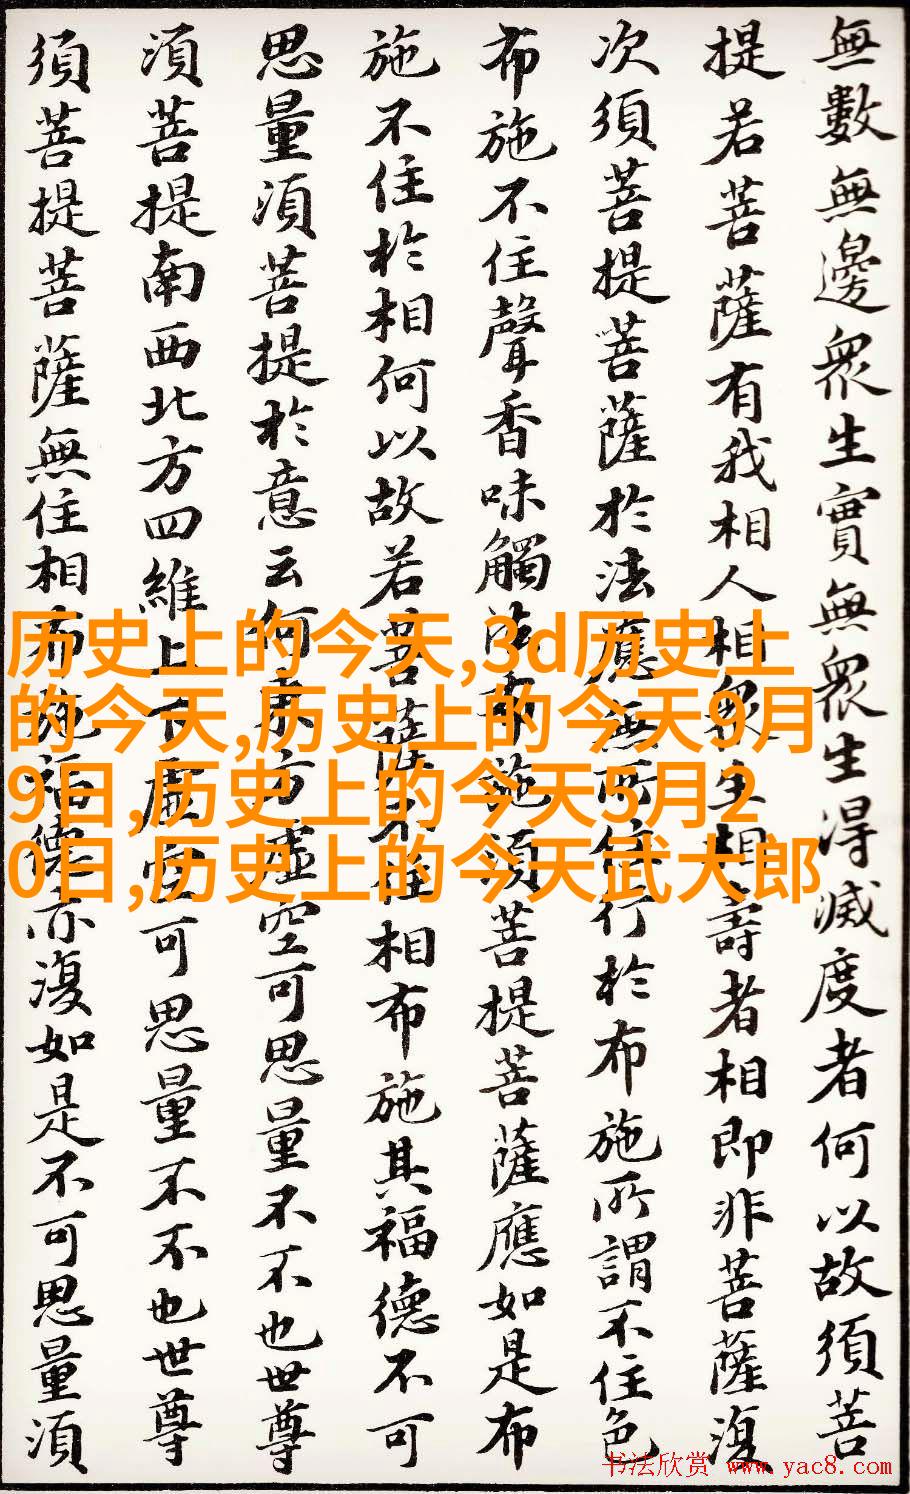 無數無邊眾生實無眾生得滅度者何以故須菩
提若菩薩有我相人相眾生相壽者相即非菩薩復
次須菩提菩薩於法應無所住行於布施所謂不住色
布施不住聲香味觸法布施須菩提菩薩應如是布
施不住於相何以故若菩薩不住相布施其福德不可
思量須菩提於意云何東方虛空可思量不不也世尊
須菩提南西北方四維上下虛空可思量不不也世尊
須菩提菩薩無住相布施福德亦復如是不可思量須
历史上的今天,3d历史上
的今天,历史上的今天9月
9日,历史上的今天5月2
0日,历史上的今天武大郎
书法欣赏 www.yac8.com